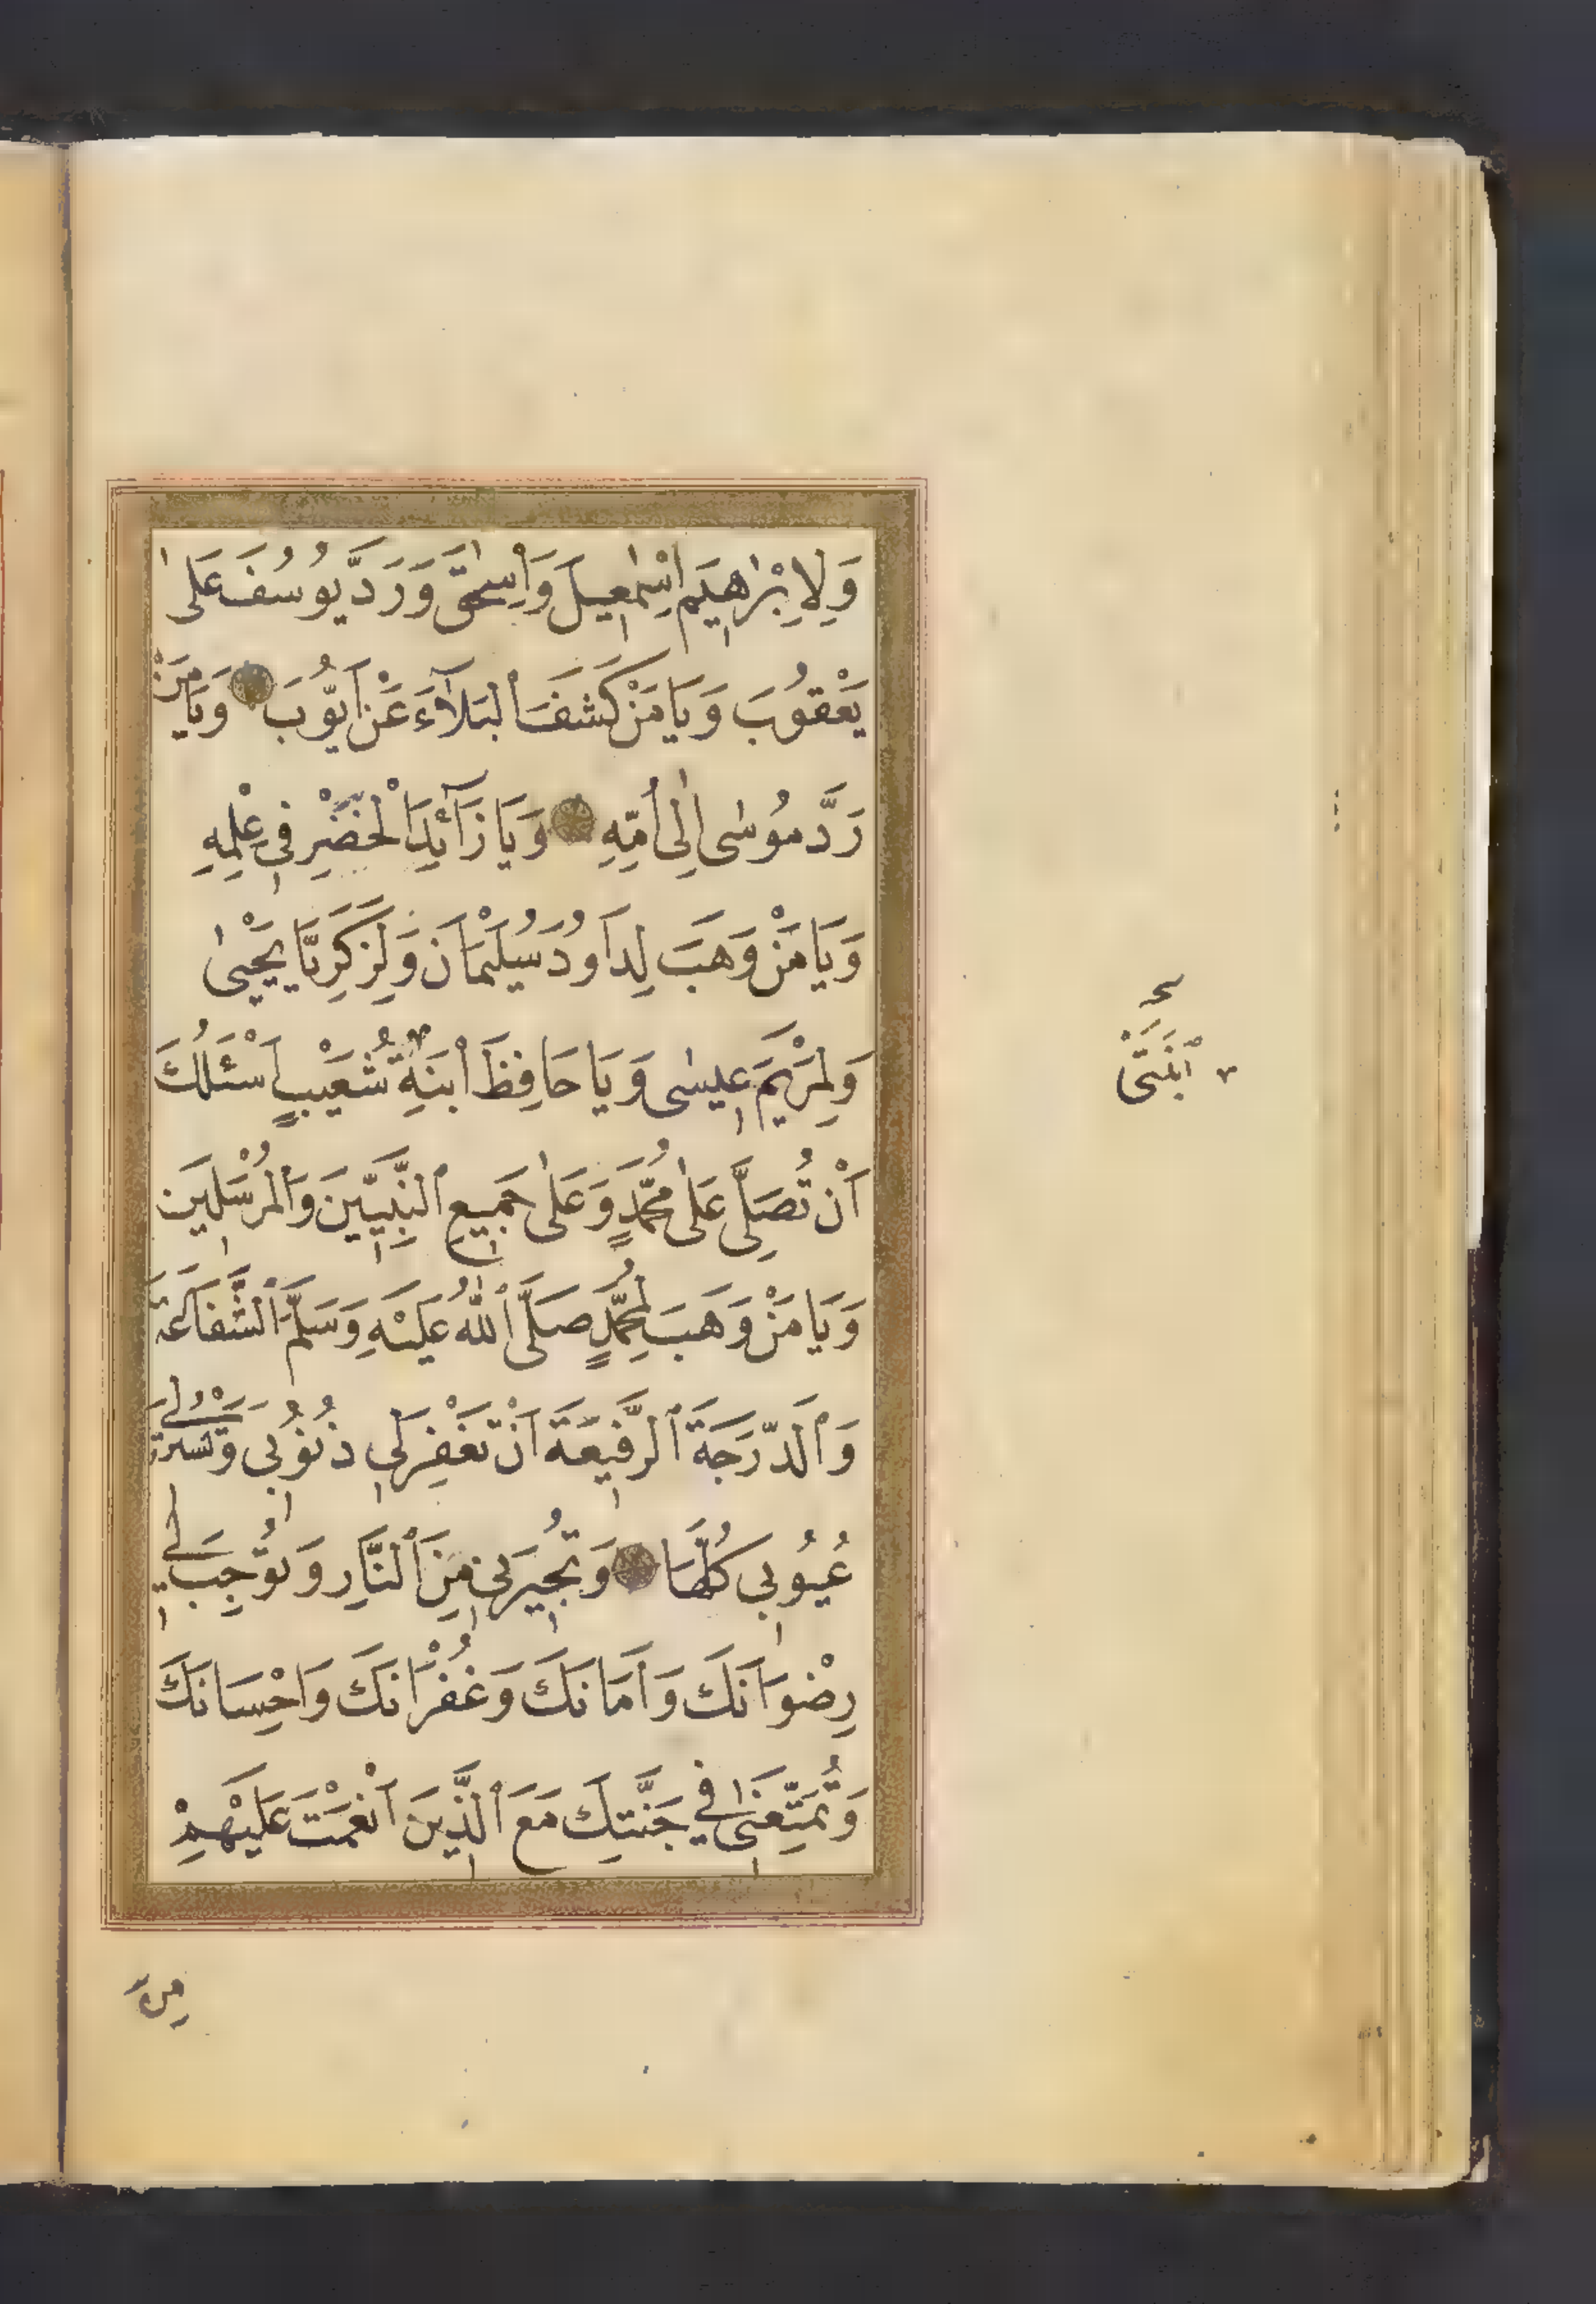 وَلِاِبْرٰاهيَم اِسْمٰعيلَ وَاِسْحٰقَ وَرَدَّ يوُسُفَ عَلٰى
يَعْقوُبَ وَيَا مَنْ كَشَفَ ٱلْبَلَآءَ عَنْ اَيّوُبَ وَيَا مَنْ
رَدَّ موُسٰى اِلٰى اُمِّهِ وَيَا زَآئِدَ ٱلْخَضِرِ في عِلْمِهِ
وَيَا مَنْ وَهَبَ لِدَاوُدَ سُلَيْمَانَ وَلِزَكَرِيَّا يَحْيىٰ
وَلِمَرْيَمَ عيسٰى وَيَا حَافِظَ ٱبْنَةِ شُعَيْبٍ اَسْئَلُكَ
اَنْ تُصَلِّىَ عَلٰى مُحَمَّدٍ وَعَلٰى جَميعِ ٱلنَّبِيّينَ وَٱلْمُرْسَلينَ
وَيَا مَنْ وَهَبَ لِمُحَمَّدٍ صَلَّى ٱللّٰهُ عَلَيْهِ وَسَلَّمَ ٱلشَّفَاعَةَ
وَٱلدَّرَجَةَ ٱلرَّفيعَةَ اَنْ تَغْفِرَلي ذُنوُبي وَتَسْتُرَلي
عُيوُبي كُلَّهَا وَتُجيرَني مِنَ ٱلنَّارِ وَتوُجِبَ لي
رِضْوَانَكَ وَاَمَانَكَ وَغُفْرَانَكَ وَاِحْسَانَكَ
وَتُمَتِّعَني في جَنَّتِكَ مَعَ ٱلَّذينَ اَنْعَمْتَ عَلَيْهِمْ
مِنَ